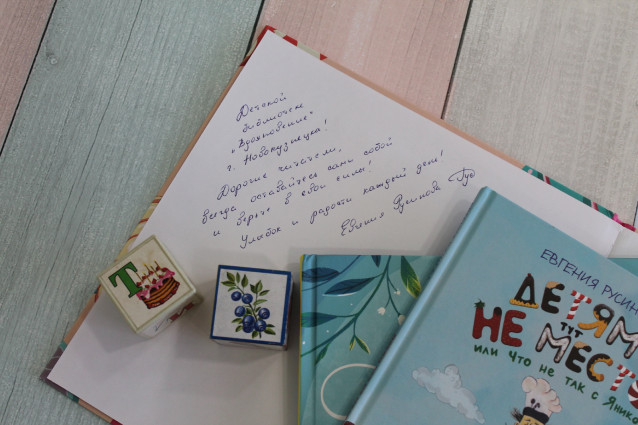 Детской
библиотеке
"Вдохновение"
г. Новокузнецка!
Дорогие читатели,
всегда оставайтесь сами собой
и верьте в свои силы!
Улыбок и радости каждый день!
Евгения Русинова
Т
ЕВГЕНИЯ РУСИН
ДЕТЯМ
ТУТ
НЕ МЕСТО
или Что не так с Янико